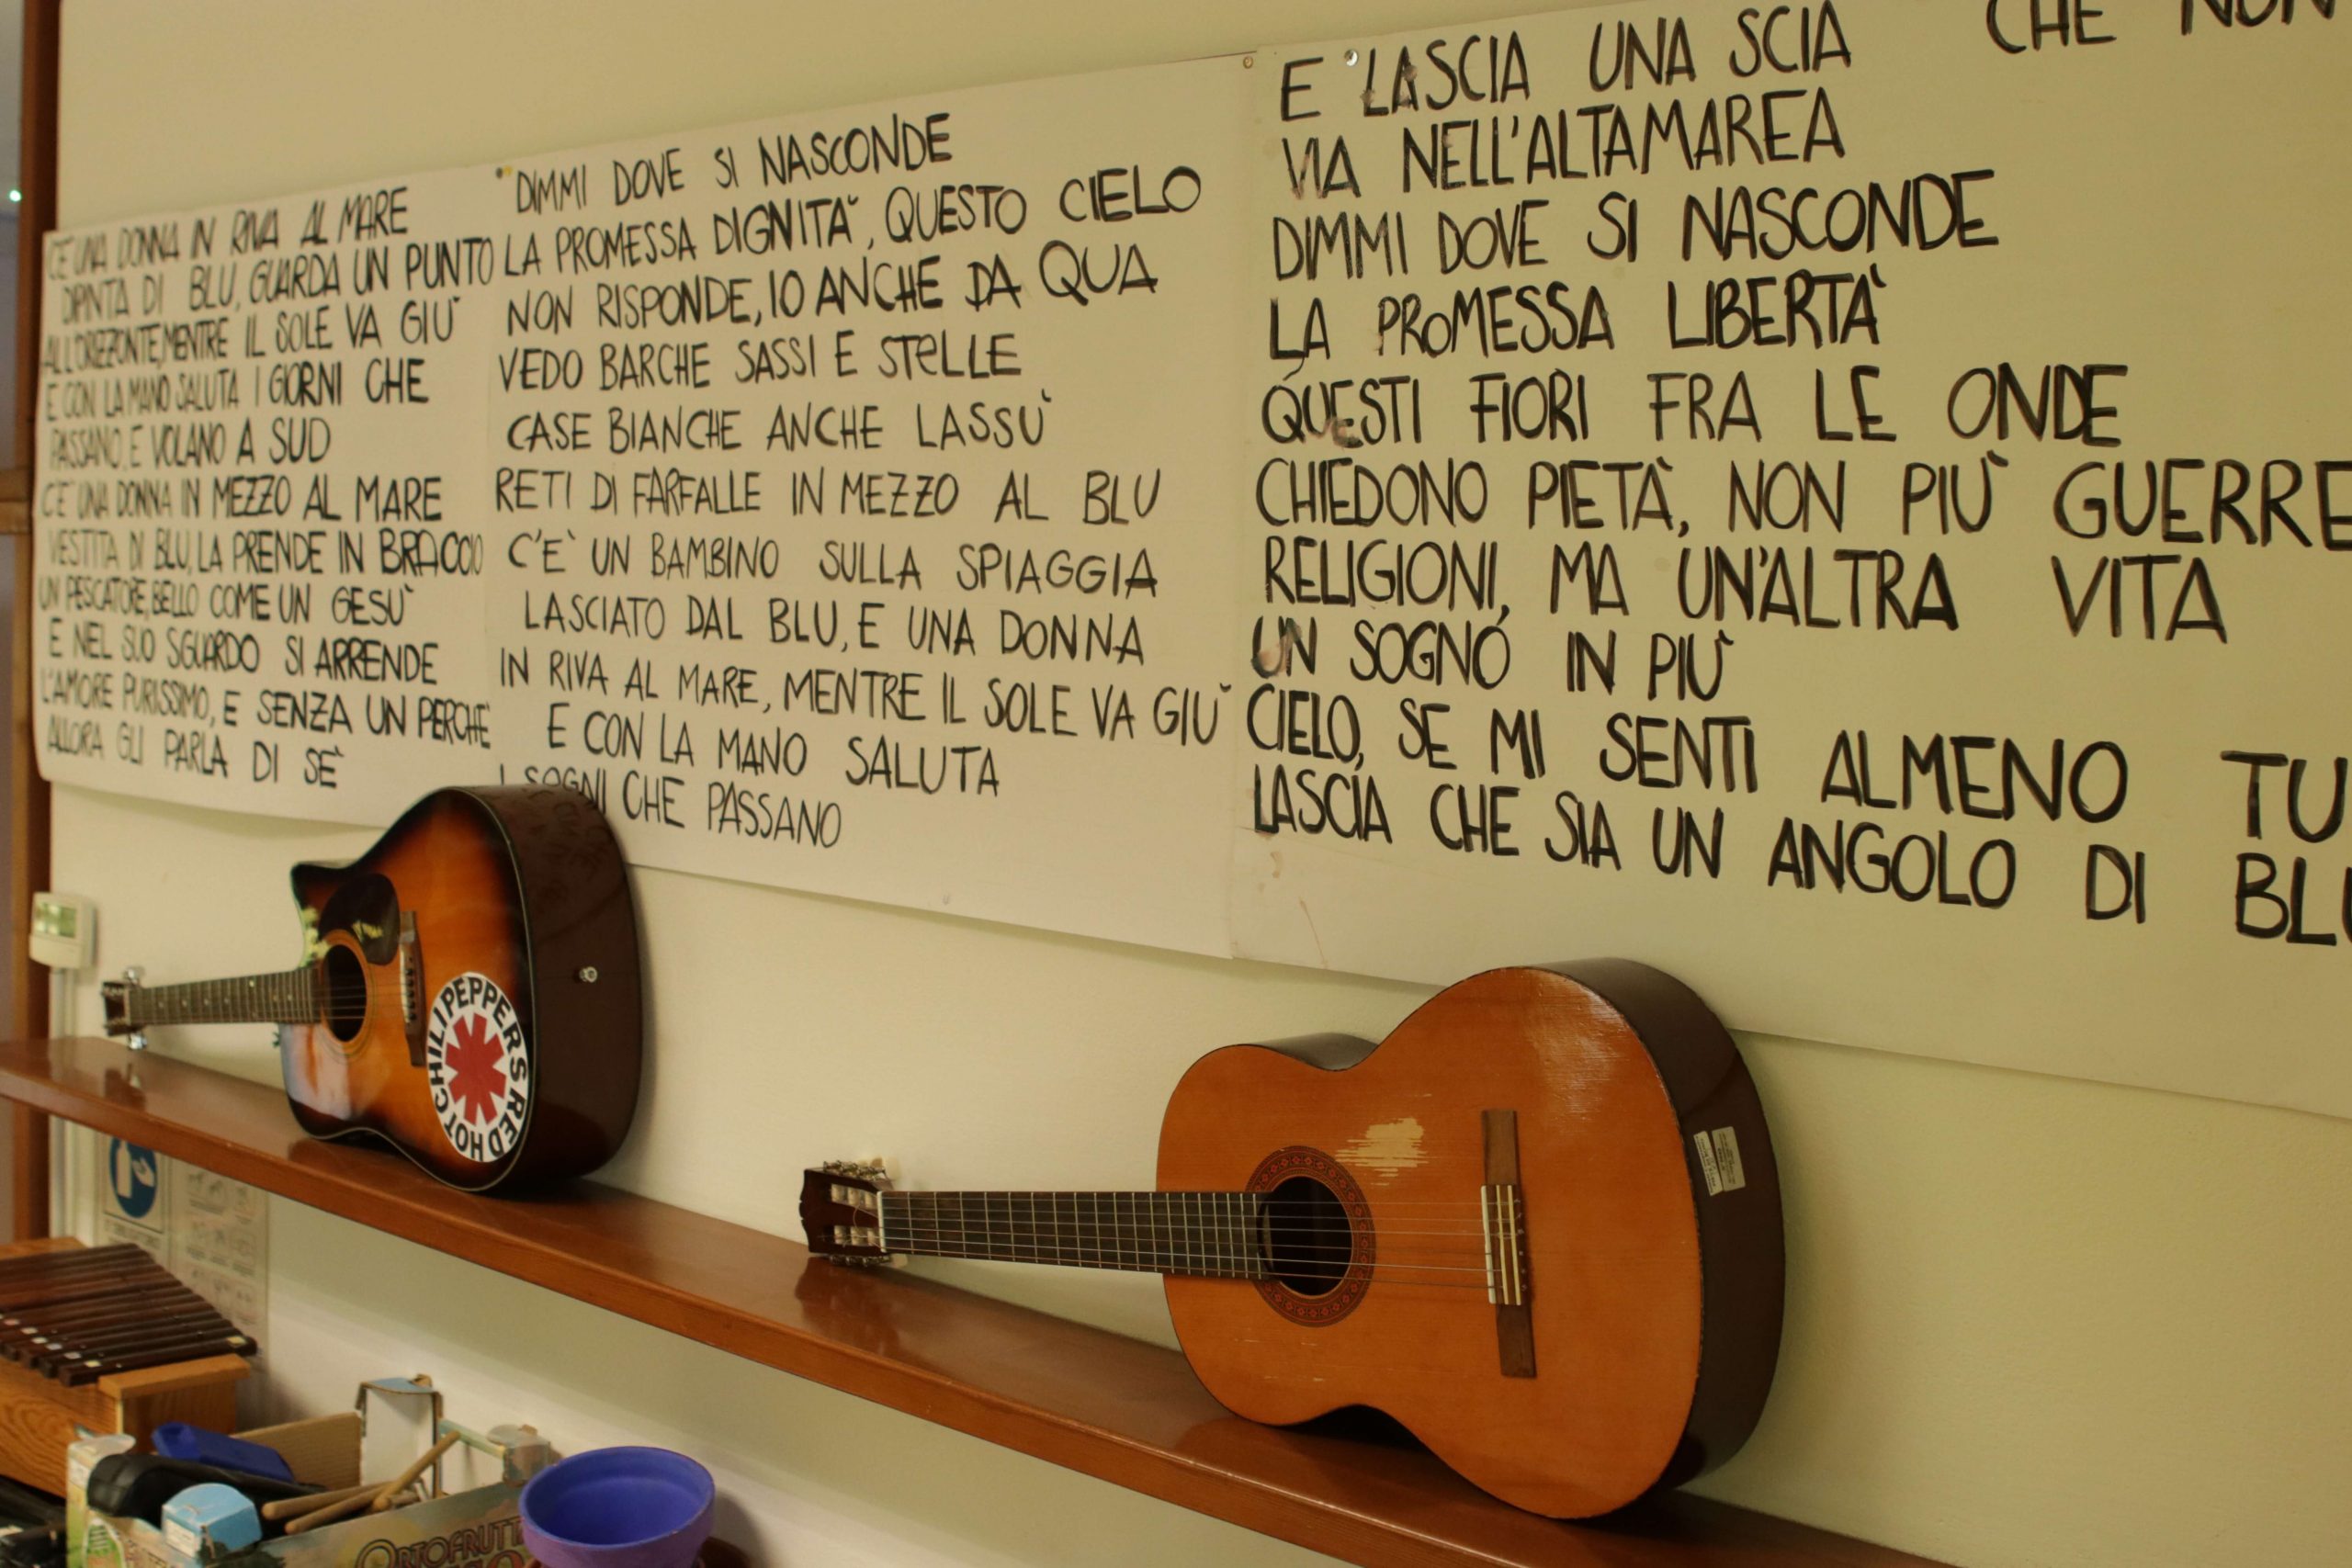 C'È UNA DONNA IN RIVA AL MARE
DIPINTA DI BLU, GUARDA UN PUNTO
ALL'ORIZZONTE, MENTRE IL SOLE VA GIÙ
E CON LA MANO SALUTA I GIORNI CHE
PASSANO, E VOLANO A SUD
C'È UNA DONNA IN MEZZO AL MARE
VESTITA DI BLU, LA PRENDE IN BRACCIO
UN PESCATORE, BELLO COME UN GESÙ
E NEL SUO SGUARDO SI ARRENDE
L'AMORE PURISSIMO, E SENZA UN PERCHÈ
ALLORA GLI PARLA DI SÈ
DIMMI DOVE SI NASCONDE
LA PROMESSA DIGNITÀ, QUESTO CIELO
NON RISPONDE, IO ANCHE DA QUA
VEDO BARCHE SASSI E STeLLE
CASE BIANCHE ANCHE LASSÙ
RETI DI FARFALLE IN MEZZO AL BLU
C'È UN BAMBINO SULLA SPIAGGIA
LASCIATO DAL BLU, E UNA DONNA
IN RIVA AL MARE, MENTRE IL SOLE VA GIÙ
E CON LA MANO SALUTA
I SOGNI CHE PASSANO
E LASCIA UNA SCIA CHE NON
VIA NELL'ALTAMAREA
DIMMI DOVE SI NASCONDE
LA PROMESSA LIBERTÀ
QUESTI FIORI FRA LE ONDE
CHIEDONO PIETÀ, NON PIÙ GUERRE
RELIGIONI, MA UN'ALTRA VITA
UN SOGNO IN PIÙ
CIELO, SE MI SENTI ALMENO TU
LASCIA CHE SIA UN ANGOLO DI BLU
RED HOT CHILI PEPPERS
ORTOFRUTT